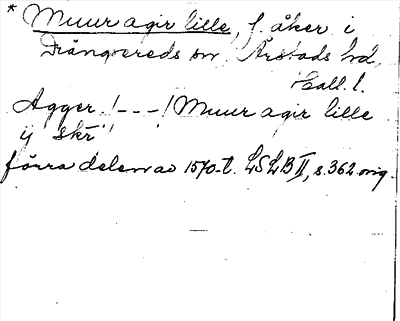 * Muur agir lille, f. åker i
Drängsereds sn, Årstads hd,
Hall. l.
Agger /---/ Muur agir lille
ij skr
förra delen av 1570-t. LSLB II, s. 362 orig.